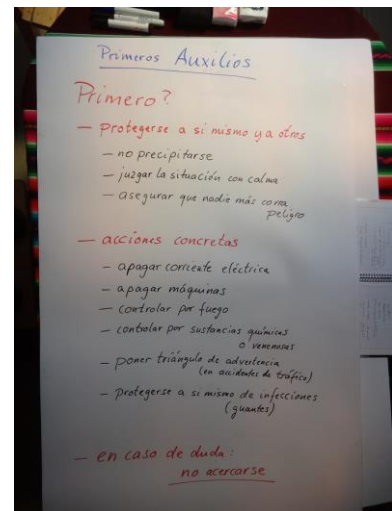 Primeros Auxilios
Primero?
- protegerse a si mismo y a otros
- no precipitarse
- juzgar la situación con calma
- asegurar que nadie más corra
peligro
- acciones concretas
- apagar corriente eléctrica
- apagar máquinas
- controlar por fuego
- controlar por sustancias químicas
o venenosas
- poner triángulo de advertencia
(en accidentes de tráfico)
- protegerse a si mismo de infecciones
(guantes)
- en caso de duda:
no acercarse